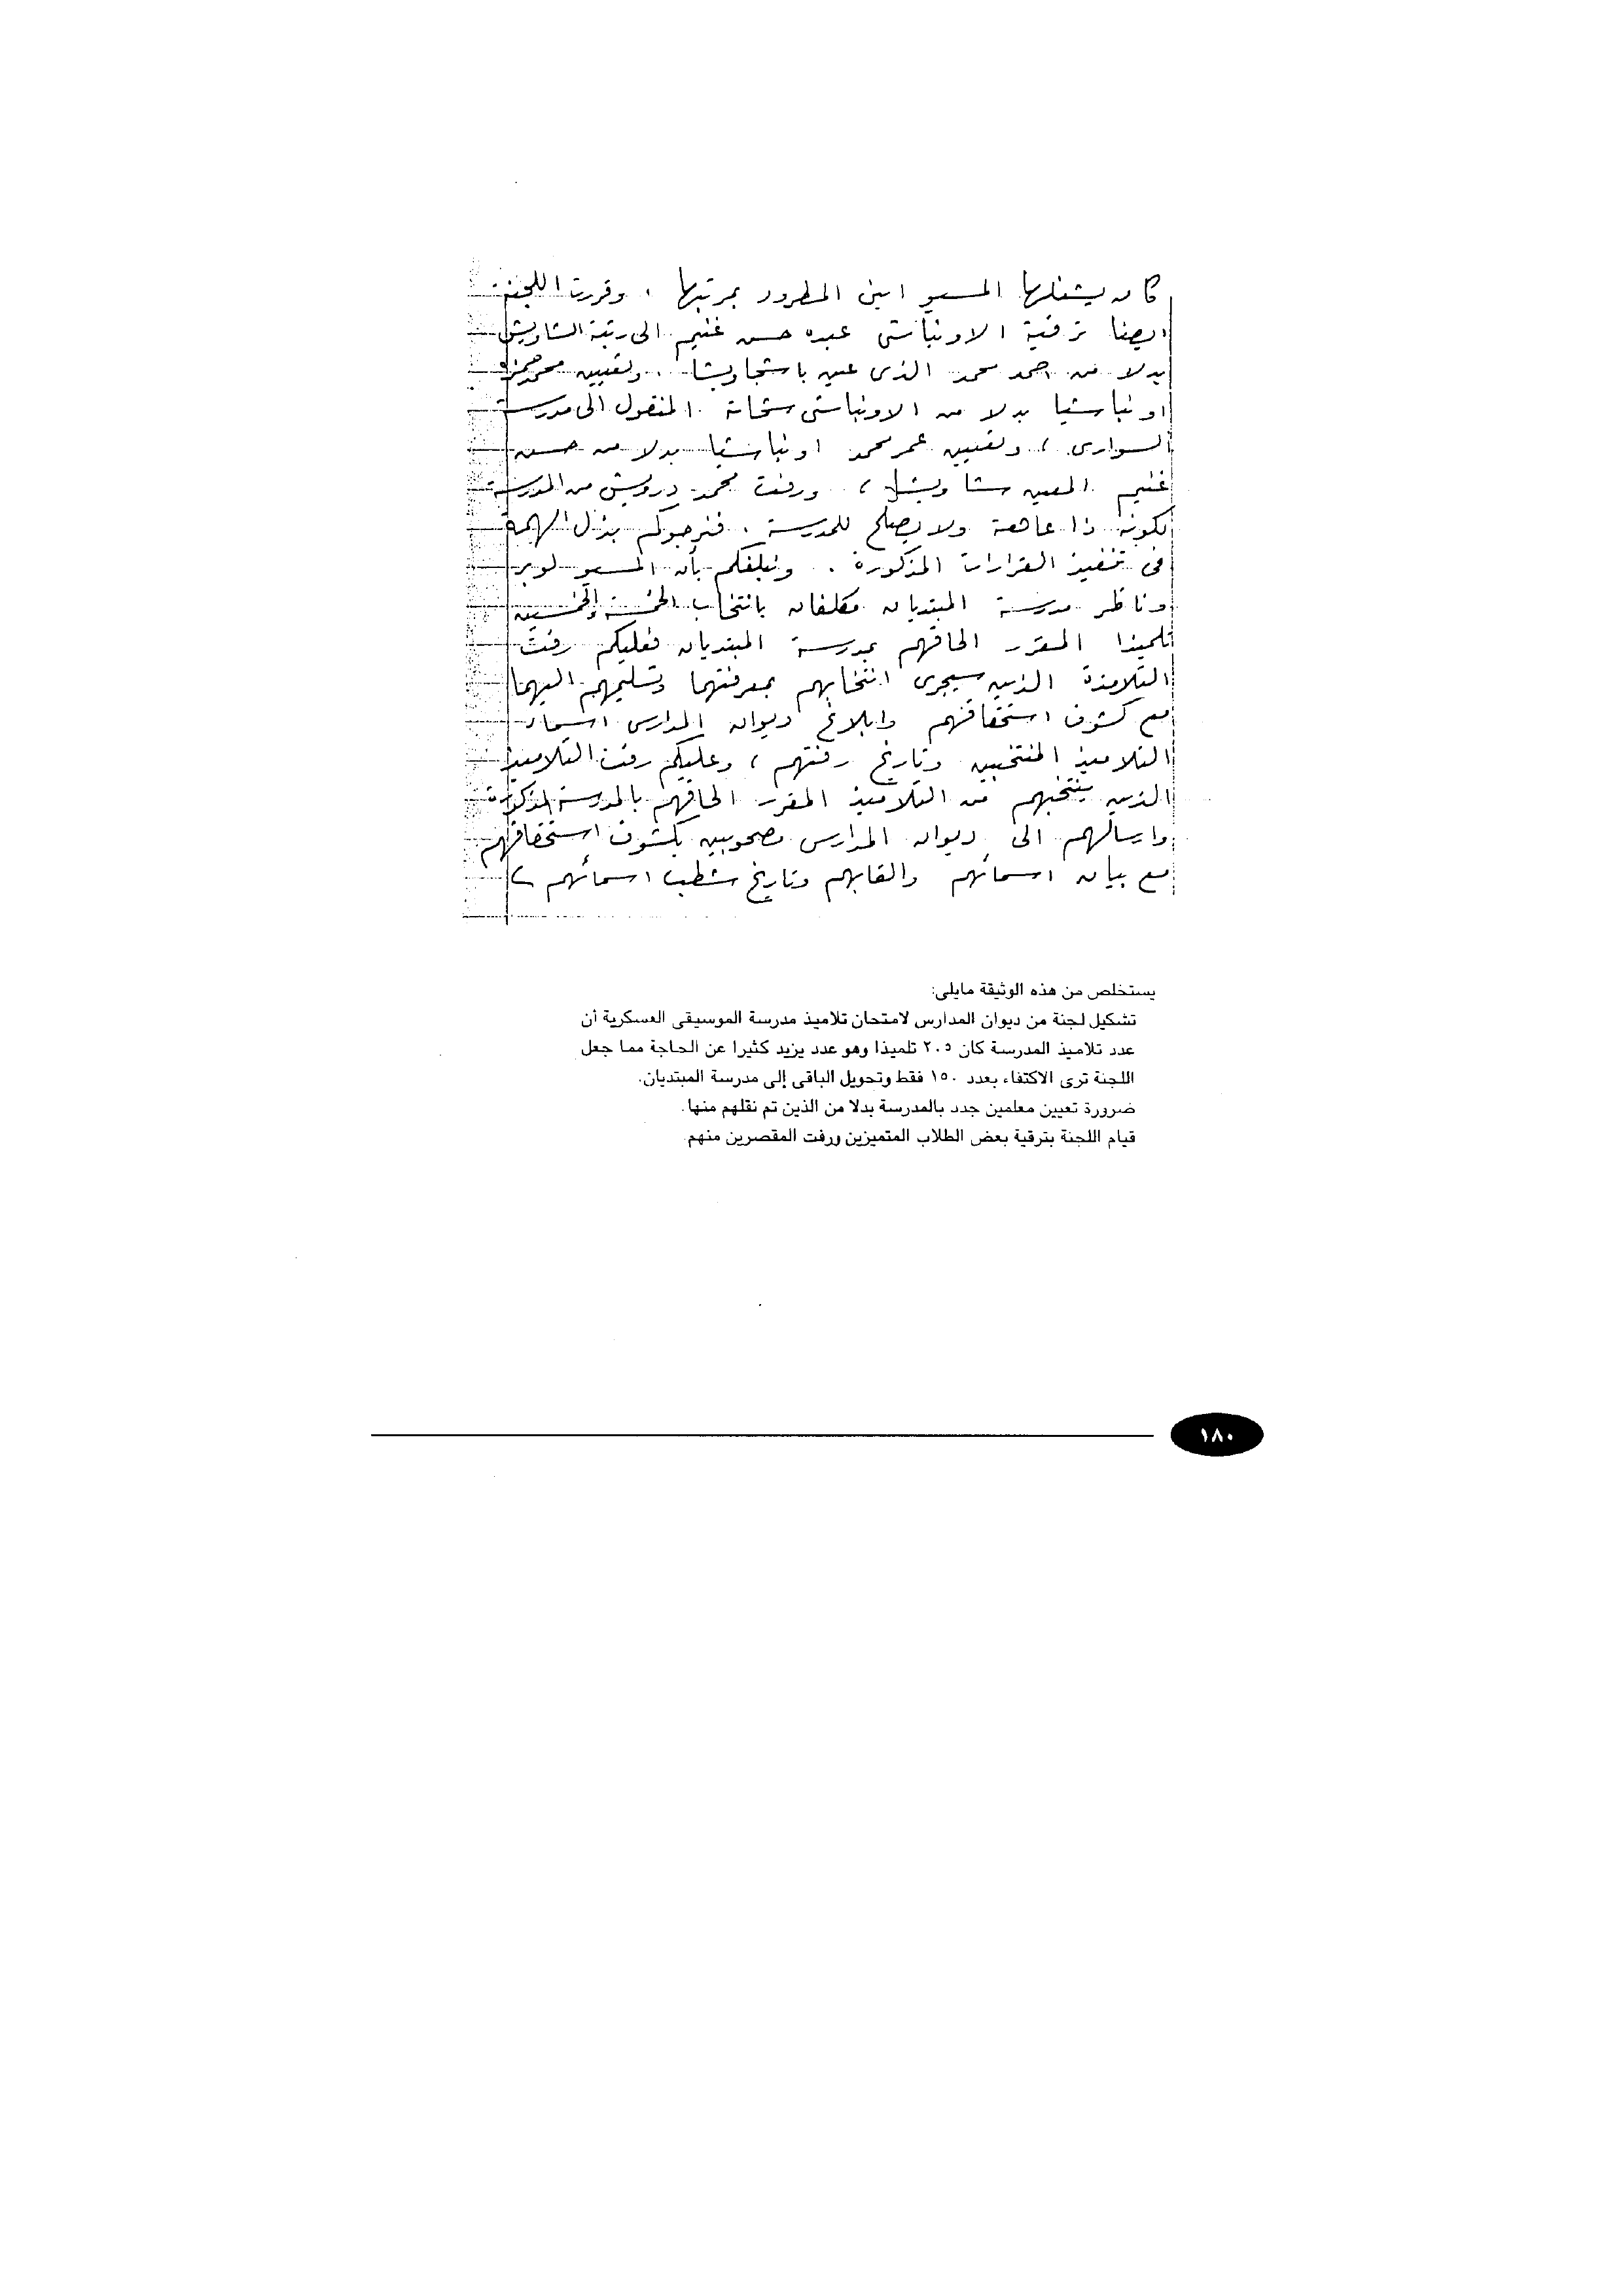 كان يشغلها المسيو ابنى المطرود بمرتبها . وقررت اللجنة
ايضا ترقية الاونباشى عبده حسن غنيم الى رتبة الشاويش
بدلا من احمد محمد الذى عين باشجاويشا . وتعيين محمد حمزه
اونباشيا بدلا من الاونباشى شحاتة المنقول الى مدرسة
السوارى ، وتعيين عمر محمد اونباشيا بدلا من حسن
غنيم المعين شاويش ، ورفت محمد درويش من المدرسة
لكونه ذا عاهة ولا يصلح للمدرسة . فنرجوكم بذل الهمة
فى تنفيذ القرارات المذكورة . ونبلغكم بأن المسيو لوبر
وناظر مدرسة المبتديان مكلفان بانتخاب الخمسة والخمسين
تلميذا المقرر الحاقهم بمدرسة المبتديان فعليكم رفت
التلامذة الذين سيجرى انتخابهم بمعرفتهما وتسليمهم اليهما
مع كشوف استحقاقهم وابلاغ ديوان المدارس اسماء
التلاميذ المنتخبين وتاريخ رفتهم ، وعليكم رفت التلاميذ
الذين ينتخبهم من التلاميذ المقرر الحاقهم بالمدرسة المذكورة
وارسالهم الى ديوان المدارس مصحوبين بكشوف استحقاقهم
مع بيان اسمائهم والقابهم وتاريخ شطب اسمائهم
يستخلص من هذه الوثيقة مايلى:
تشكيل لجنة من ديوان المدارس لامتحان تلاميذ مدرسة الموسيقى العسكرية أن
عدد تلاميذ المدرسة كان ٢٠٥ تلميذا وهو عدد يزيد كثيرا عن الحاجة مما جعل
اللجنة ترى الاكتفاء بعدد ١٥٠ فقط وتحويل الباقى إلى مدرسة المبتديان.
ضرورة تعيين معلمين جدد بالمدرسة بدلا من الذين تم نقلهم منها.
قيام اللجنة بترقية بعض الطلاب المتميزين ورفت المقصرين منهم
١٨٠